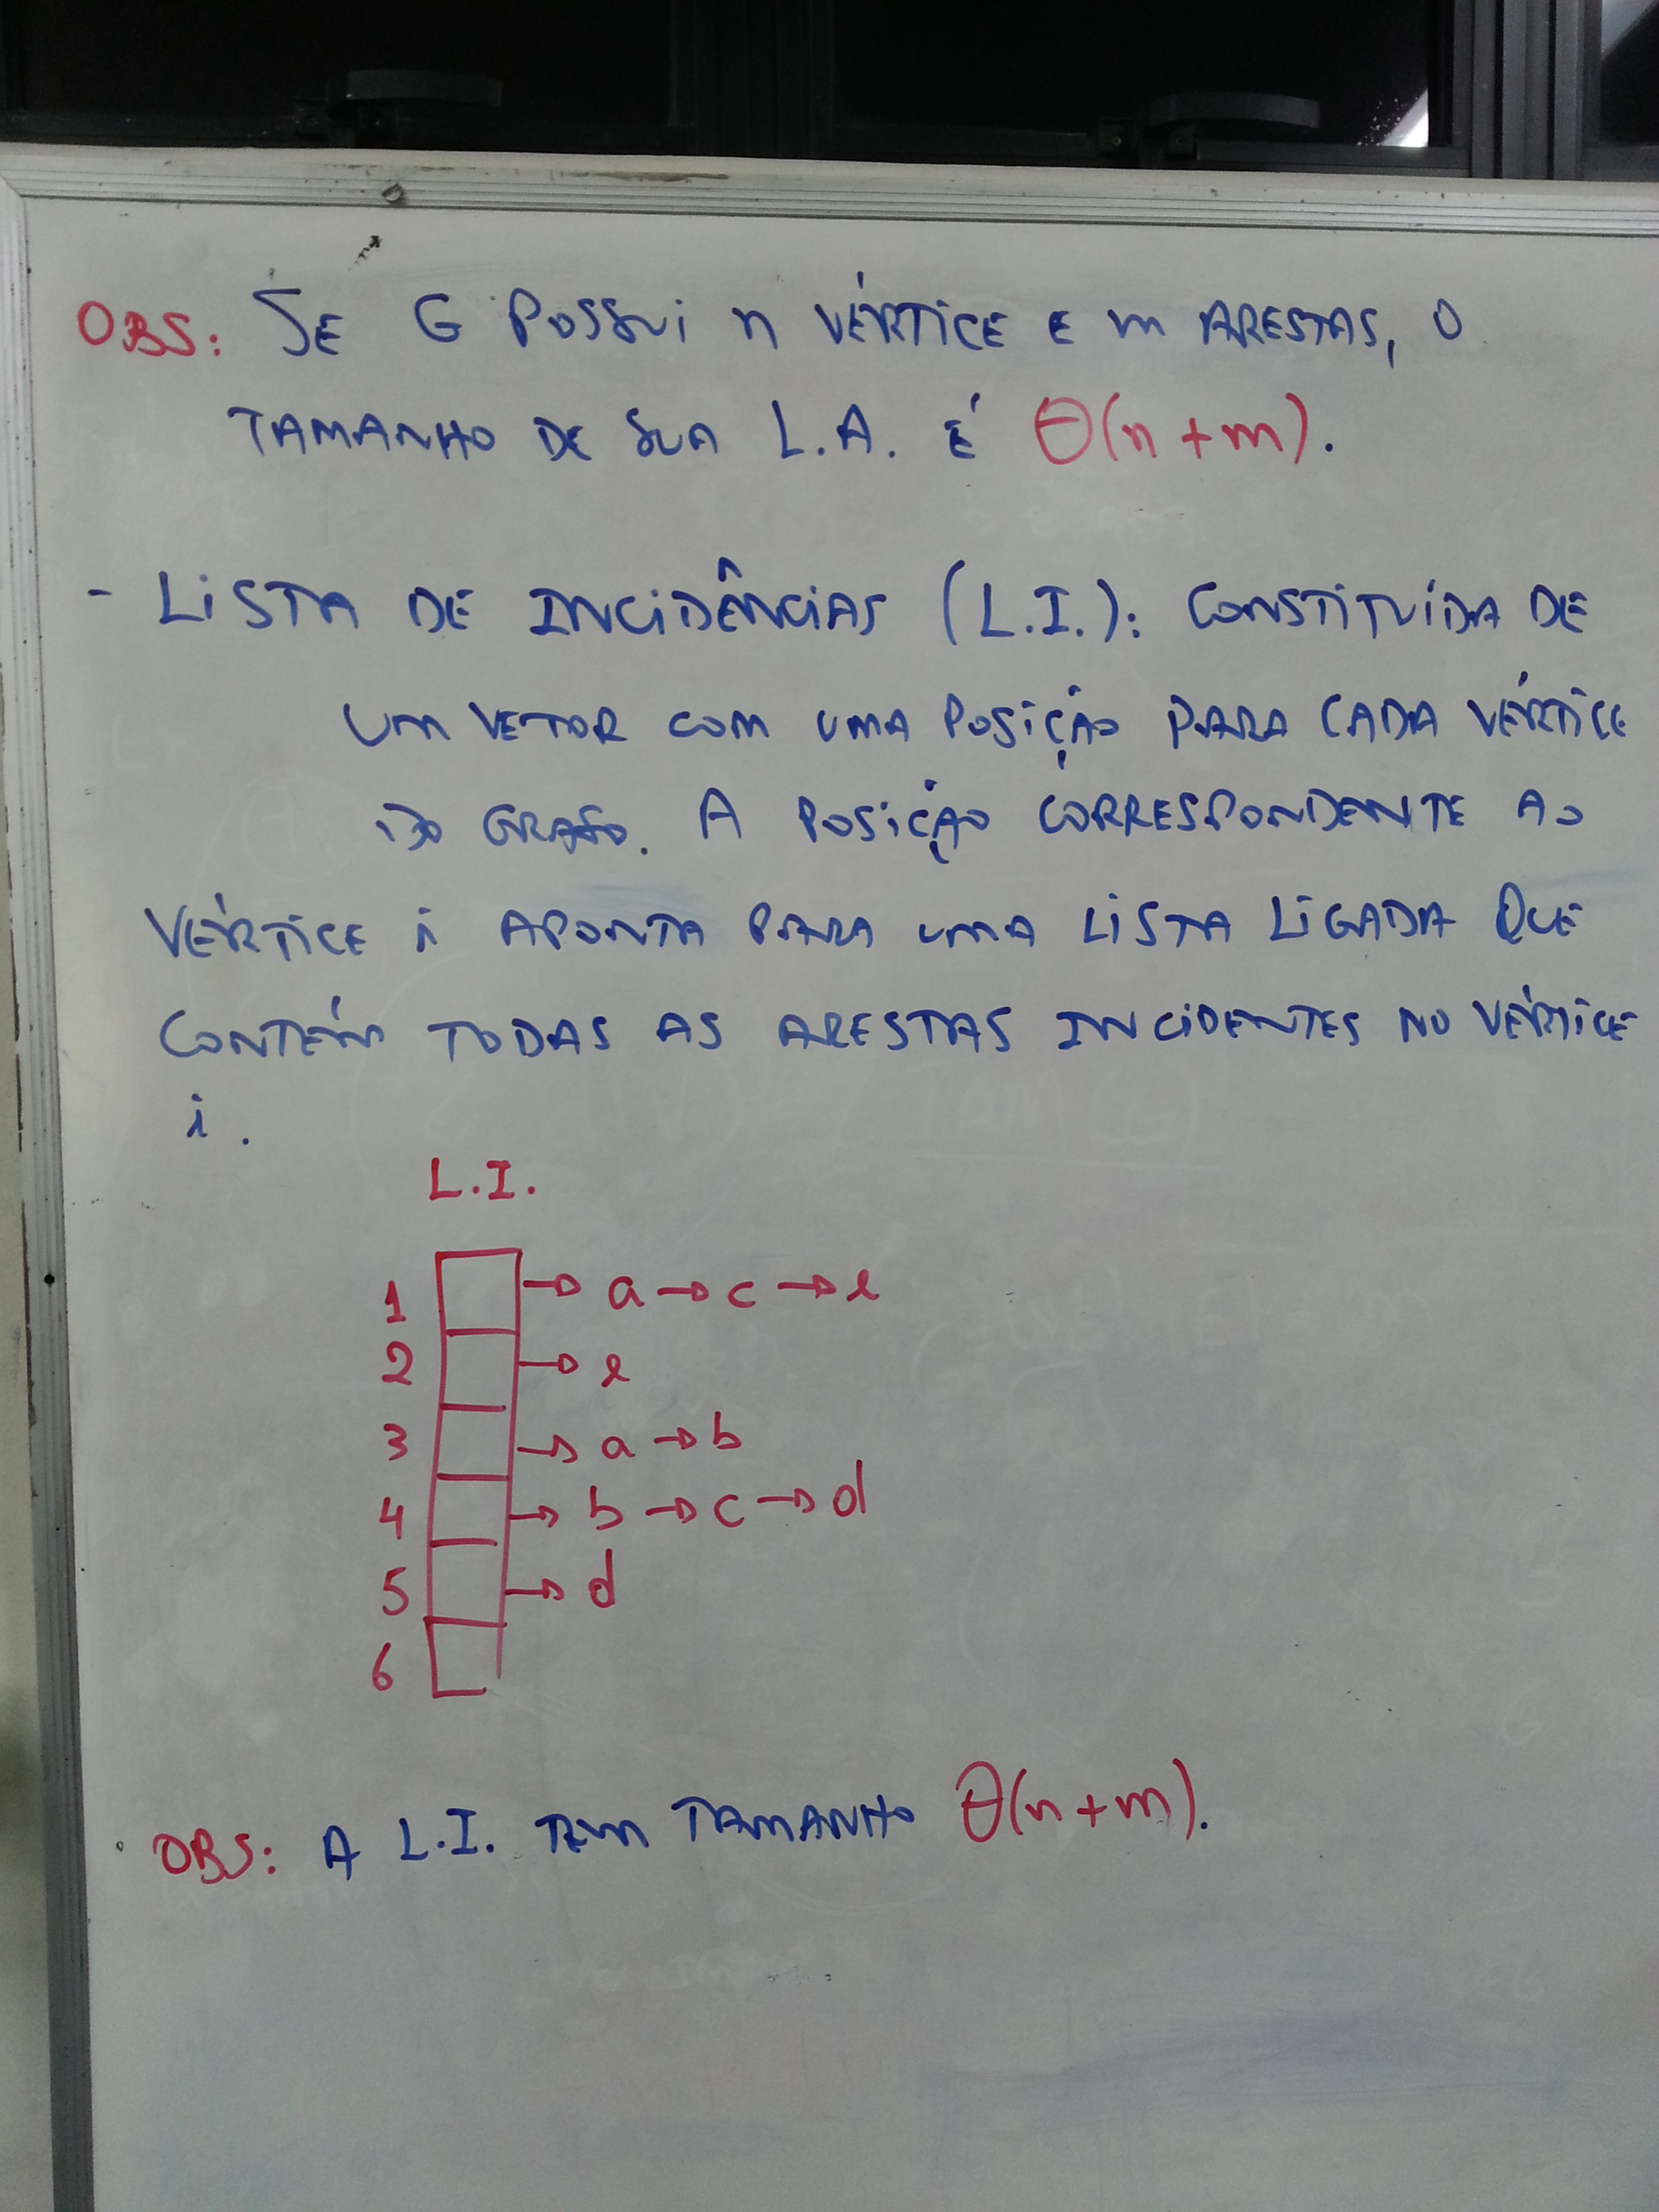 OBS: SE G POSSUI n VÉRTICE E m ARESTAS, O
TAMANHO DE SUA L.A. É Θ(n+m).
- LISTA DE INCIDÊNCIAS (L.I.): CONSTITUÍDA DE
UM VETOR COM UMA POSIÇÃO PARA CADA VÉRTICE
DO GRAFO. A POSIÇÃO CORRESPONDENTE AO
VÉRTICE i APONTA PARA UMA LISTA LIGADA QUE
CONTÉM TODAS AS ARESTAS INCIDENTES NO VÉRTICE
i.
L.I.
1 → a → c → e
2 → e
3 → a → b
4 → b → c → d
5 → d
6
OBS: A L.I. TEM TAMANHO Θ(n+m).